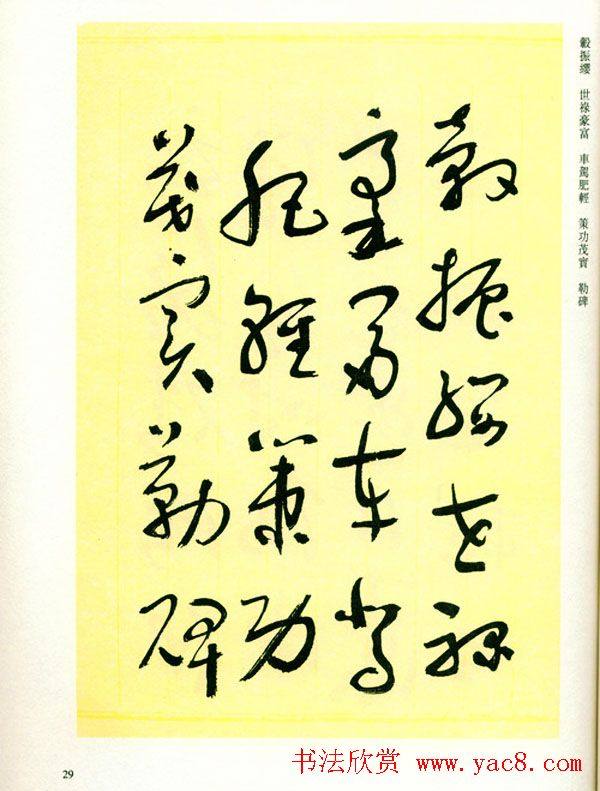 轂振纓 世祿豪富 車駕肥輕 策功茂實 勒碑
轂振纓世祿
豪富車駕
肥輕策功
茂實勒碑
29
书法欣赏 www.yac8.com